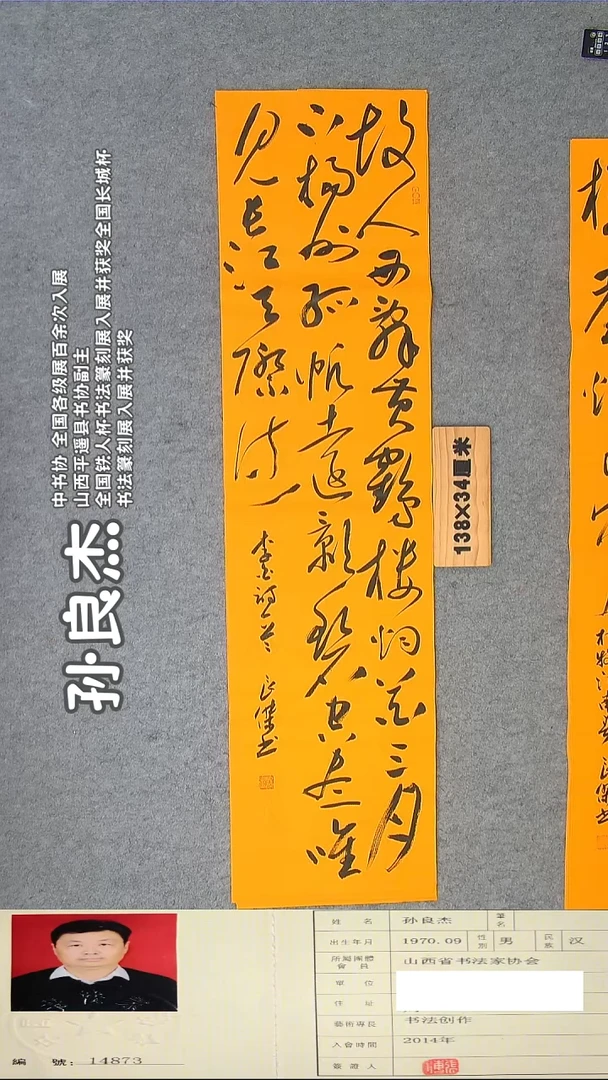 故人西辞黄鹤楼烟花三月
下扬州孤帆远影碧空尽唯
见长江天际流
李白诗一首 良杰书
138×34厘米
孙良杰
中书协 全国各级展百余次入展
山西平遥县书协副主
全国铁人杯书法篆刻展入展并获奖全国长城杯
书法篆刻展入展并获奖
姓 名 孙良杰 筆名
出生年月 1970.09 性別 男 民族 汉
所屬團體會員 山西省书法家协会
單 位
住 址
藝術專長 书法创作
入會時間 2014年
簽證人
編 號: 14873